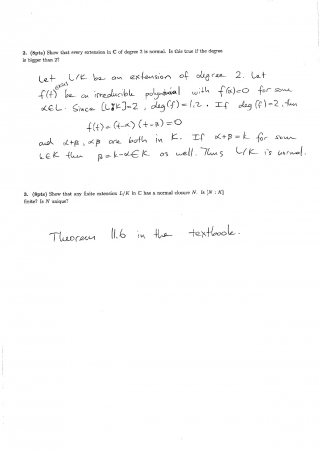 2. (8pts) Show that every extension in C of degree 2 is normal. Is this true if the degree
is bigger than 2?
Let L/K be an extension of degree 2. Let
f(t) be an irreducible polynomial with f(α)=0 for some
α∈L. Since [L:K]=2, deg(f)=1,2. If deg(f)=2, then
f(t)=(t-α)(t-β)=0
and α+β, αβ are both in K. If α+β=k for some
k∈K then β=k-α∈K as well. Thus L/K is normal.
3. (8pts) Show that any finite extension L/K in C has a normal closure N. Is [N : K]
finite? Is N unique?
Theorem 11.6 in the textbook.